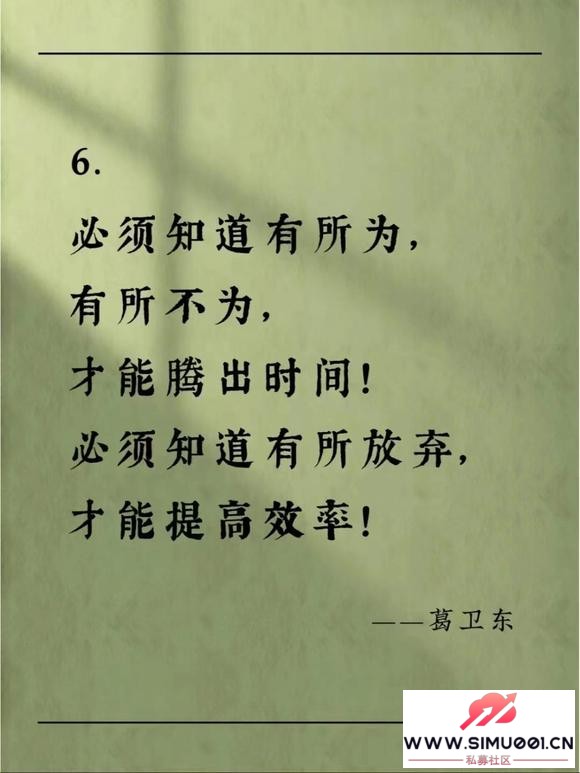 6.
必须知道有所为，
有所不为，
才能腾出时间！
必须知道有所放弃，
才能提高效率！
——葛卫东
WWW.SIMU001.CN
私募社区